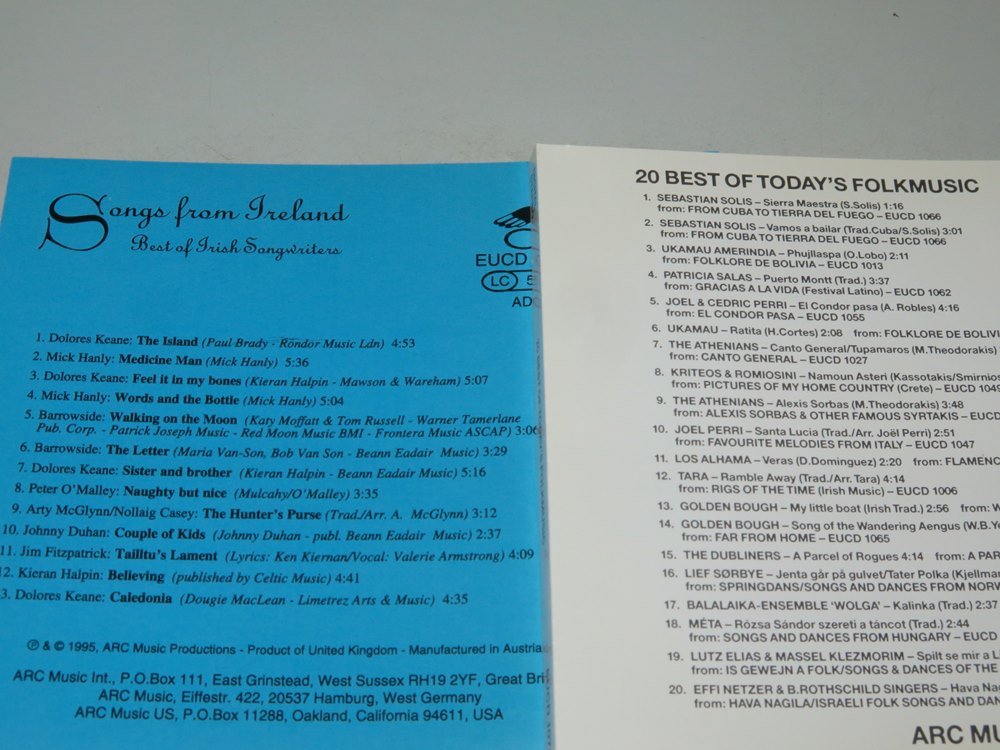 Songs from Ireland
Best of Irish Songwriters
EUCD
LC 5
1. Dolores Keane: The Island (Paul Brady - Röndor Music Ldn) 4:53
2. Mick Hanly: Medicine Man (Mick Hanly) 5:36
3. Dolores Keane: Feel it in my bones (Kieran Halpin - Mawson & Wareham) 5:07
4. Mick Hanly: Words and the Bottle (Mick Hanly) 5:04
5. Barrowside: Walking on the Moon (Katy Moffatt & Tom Russell - Warner Tamerlane
Pub. Corp. - Patrick Joseph Music - Red Moon Music BMI - Frontera Music ASCAP) 3:06
6. Barrowside: The Letter (Maria Van-Son, Bob Van Son - Beann Eadair Music) 3:29
7. Dolores Keane: Sister and brother (Kieran Halpin - Beann Eadair Music) 5:16
8. Peter O'Malley: Naughty but nice (Mulcahy/O'Malley) 3:35
9. Arty McGlynn/Nollaig Casey: The Hunter's Purse (Trad./Arr. A. McGlynn) 3:12
10. Johnny Duhan: Couple of Kids (Johnny Duhan - publ. Beann Eadair Music) 2:37
11. Jim Fitzpatrick: Tailltu's Lament (Lyrics: Ken Kiernan/Vocal: Valerie Armstrong) 4:09
12. Kieran Halpin: Believing (published by Celtic Music) 4:41
3. Dolores Keane: Caledonia (Dougie MacLean - Limetrez Arts & Music) 4:35
℗ & © 1995, ARC Music Productions - Product of United Kingdom - Manufactured in Austria
ARC Music Int., P.O.Box 111, East Grinstead, West Sussex RH19 2YF, Great Brit
ARC Music, Eiffestr. 422, 20537 Hamburg, West Germany
ARC Music US, P.O.Box 11288, Oakland, California 94611, USA
20 BEST OF TODAY'S FOLKMUSIC
1. SEBASTIAN SOLIS – Sierra Maestra (S.Solis) 1:16
from: FROM CUBA TO TIERRA DEL FUEGO – EUCD 1066
2. SEBASTIAN SOLIS – Vamos a bailar (Trad.Cuba/S.Solis) 3:01
from: FROM CUBA TO TIERRA DEL FUEGO – EUCD 1066
3. UKAMAU AMERINDIA – Phujllaspa (O.Lobo) 2:11
from: FOLKLORE DE BOLIVIA – EUCD 1013
4. PATRICIA SALAS – Puerto Montt (Trad.) 3:37
from: GRACIAS A LA VIDA (Festival Latino) – EUCD 1062
5. JOEL & CEDRIC PERRI – El Condor pasa (A. Robles) 4:16
from: EL CONDOR PASA – EUCD 1055
6. UKAMAU – Ratita (H.Cortes) 2:08 from: FOLKLORE DE BOLIVI
7. THE ATHENIANS – Canto General/Tupamaros (M.Theodorakis)
from: CANTO GENERAL – EUCD 1027
8. KRITEOS & ROMIOSINI – Namoun Asteri (Kassotakis/Smirnios
from: PICTURES OF MY HOME COUNTRY (Crete) – EUCD 1049
9. THE ATHENIANS – Alexis Sorbas (M.Theodorakis) 3:48
from: ALEXIS SORBAS & OTHER FAMOUS SYRTAKIS – EUCD
10. JOEL PERRI – Santa Lucia (Trad./Arr. Joël Perri) 2:51
from: FAVOURITE MELODIES FROM ITALY – EUCD 1047
11. LOS ALHAMA – Veras (D.Dominguez) 2:20 from: FLAMENC
12. TARA – Ramble Away (Trad./Arr.Tara) 4:14
from: RIGS OF THE TIME (Irish Music) – EUCD 1006
13. GOLDEN BOUGH – My little boat (Irish Trad.) 2:56 from: W
14. GOLDEN BOUGH – Song of the Wandering Aengus (W.B.Ye
from: FAR FROM HOME – EUCD 1065
15. THE DUBLINERS – A Parcel of Rogues 4:14 from: A PAR
16. LIEF SØRBYE – Jenta går på gulvet/Tater Polka (Kjellmar
from: SPRINGDANS/SONGS AND DANCES FROM NORW
17. BALALAIKA-ENSEMBLE 'WOLGA' – Kalinka (Trad.) 2:37
18. MÉTA – Rózsa Sándor szereti a táncot (Trad.) 2:44
from: SONGS AND DANCES FROM HUNGARY – EUCD
19. LUTZ ELIAS & MASSEL KLEZMORIM – Spilt se mir a L
from: IS GEWEJN A FOLK/SONGS & DANCES OF THE
20. EFFI NETZER & B.ROTHSCHILD SINGERS – Hava Nag
from: HAVA NAGILA/ISRAELI FOLK SONGS AND DAN
ARC MU